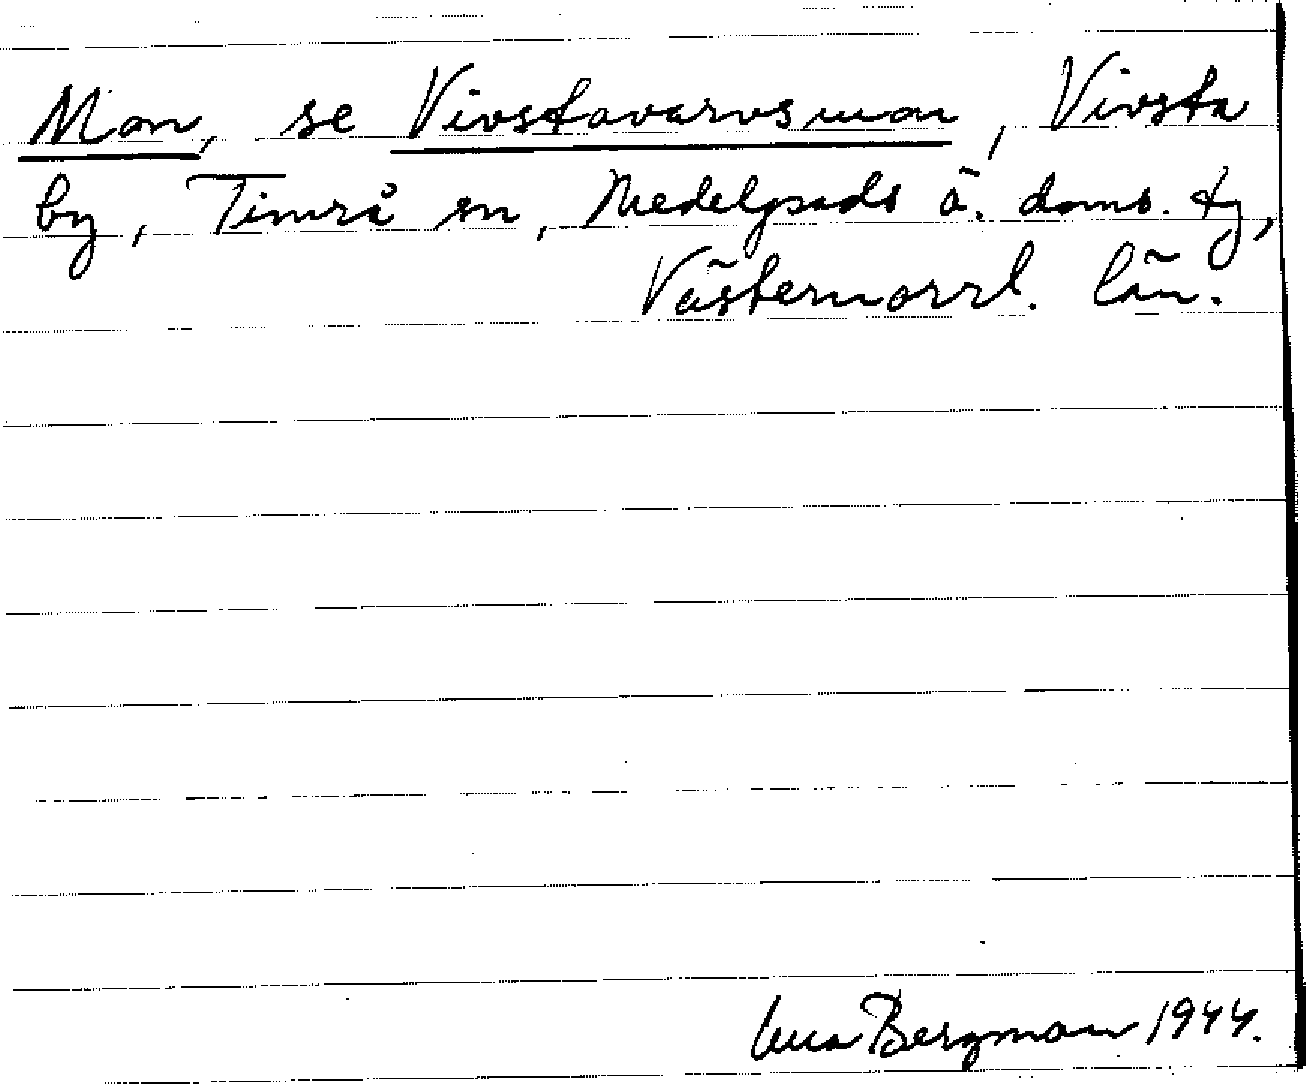 Mon, se Vivstavarvsmon, Vivsta
by, Timrå sn, Medelpads ö. doms. tg,
Västernorrl. län.
Bergman 1944.